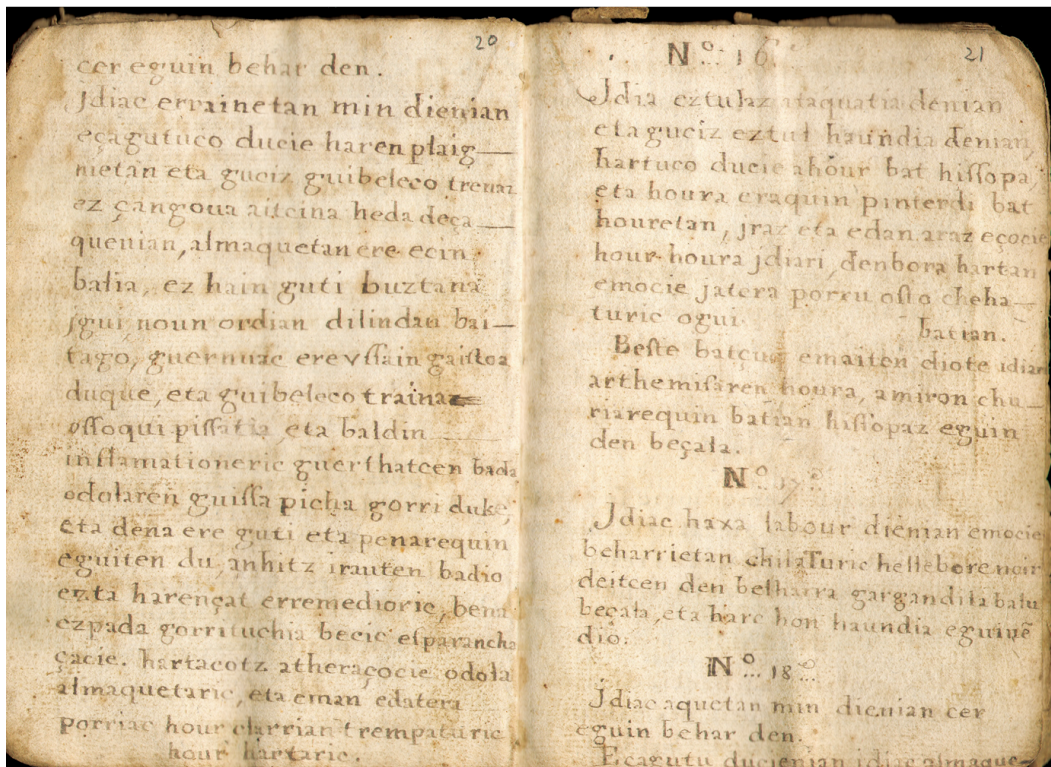 20
cer eguin behar den.
Jdiac errainetan min dienian
eçagutuco ducie haren plaig
nietan eta guciz guibeleco trenaz
ez çangoua aitcina heda deça
quenian, almaquetan ere ecin
balia, ez hain guti buztana
jgui, noun ordian dilindau bai
tago, guernuac ere vssain gaistoa
duque, eta guibeleco traina
ossoqui pissatia, eta baldin
inflamationeric guerthatcen bada
odolaren guissa picha gorri duke,
eta dena ere guti eta penarequin
eguiten du, anhitz irauten badio
ezta harençat erremedioric, bena
ezpada gorrituchia becic esparancha
çacie. hartacotz atheraçocie odola
almaquetaric, eta eman edatera
porriac hour clarrian trempaturic
hour hartaric.
21
No. 16
Jdia eztulaz ataquatia denian
eta guciz eztul haundia denian,
hartuco ducie ahour bat hissopa,
eta houra eraquin pinterdi bat
houretan, jraz eta edan araz eçocie
hour houra jdiari, denbora hartan
emocie jatera porru osto cheha
turic ogui batian.
Beste batçuc emaiten diote idiari
arthemisaren houra, amiron chu
riarequin batian hissopaz eguin
den beçala.
No. 17
Jdiac haxa labour dienian emocie
beharrietan chilaturic hellebore noir
deitcen den belharra gargandila balu
beçala, eta harc hon haundia eguinē
dio.
No. 18
Jdiac aquetan min dienian cer
eguin behar den.
Eçagutu ducienian idiac almaque